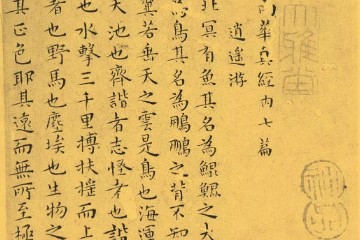 南華真經內七篇
逍遙游
北冥有魚其名為鯤鯤之大
為鳥其名為鵬鵬之背不知
翼若垂天之雲是鳥也海運
大池也齊諧者志怪者也諧
也水擊三千里搏扶搖而上
者也野馬也塵埃也生物之
其正色耶其遠而無所至極